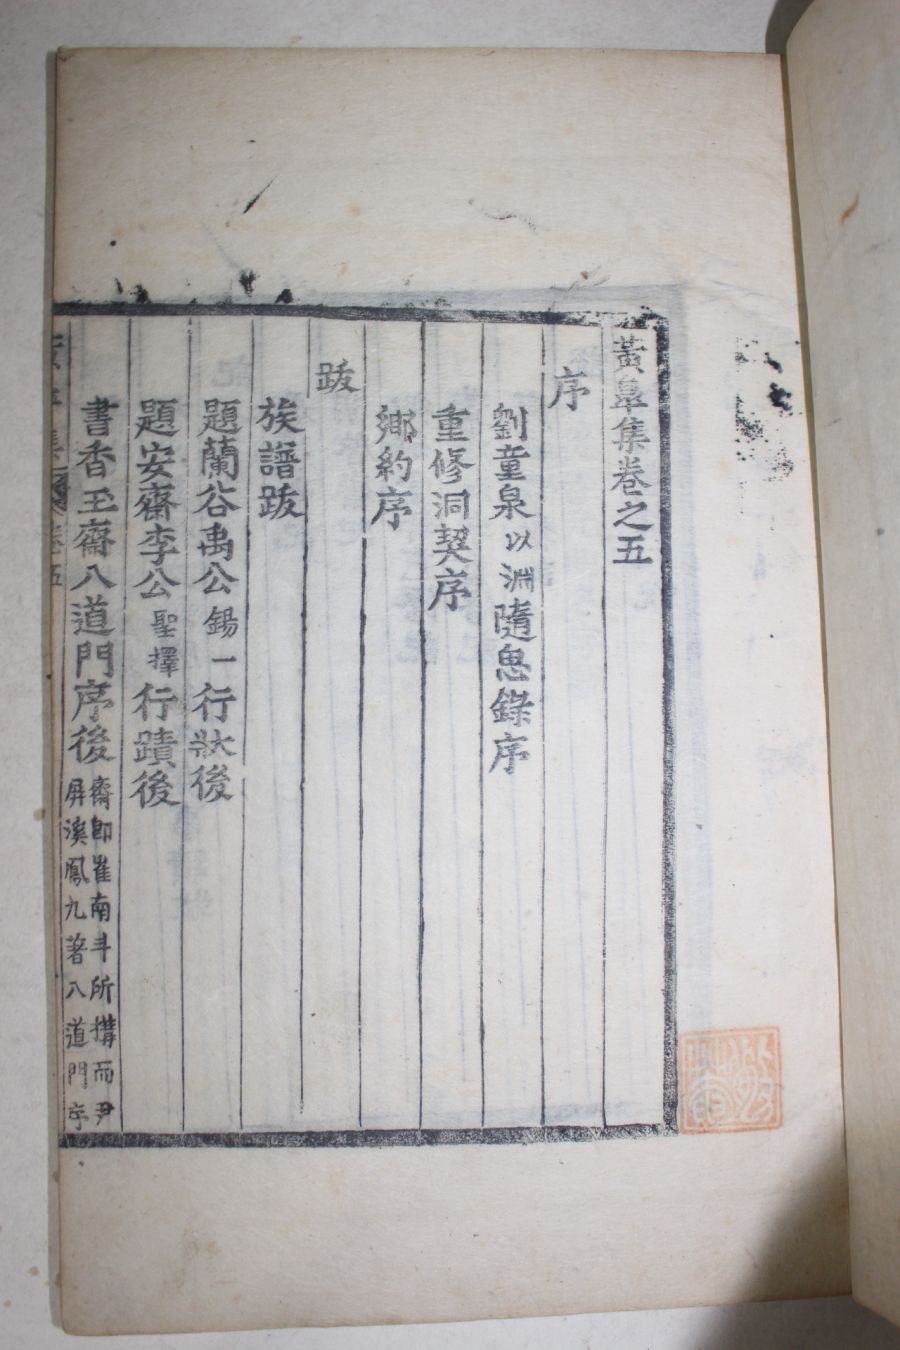 黃皐集卷之五
序
劉童泉以淵隨思錄序
重修洞契序
鄉約序
跋
族譜跋
題蘭谷禹公錫一行狀後
題安齋李公聖擇行蹟後
書香玉齋八道門序後齋卽崔南斗所搆而尹
屛溪鳳九著八道門序